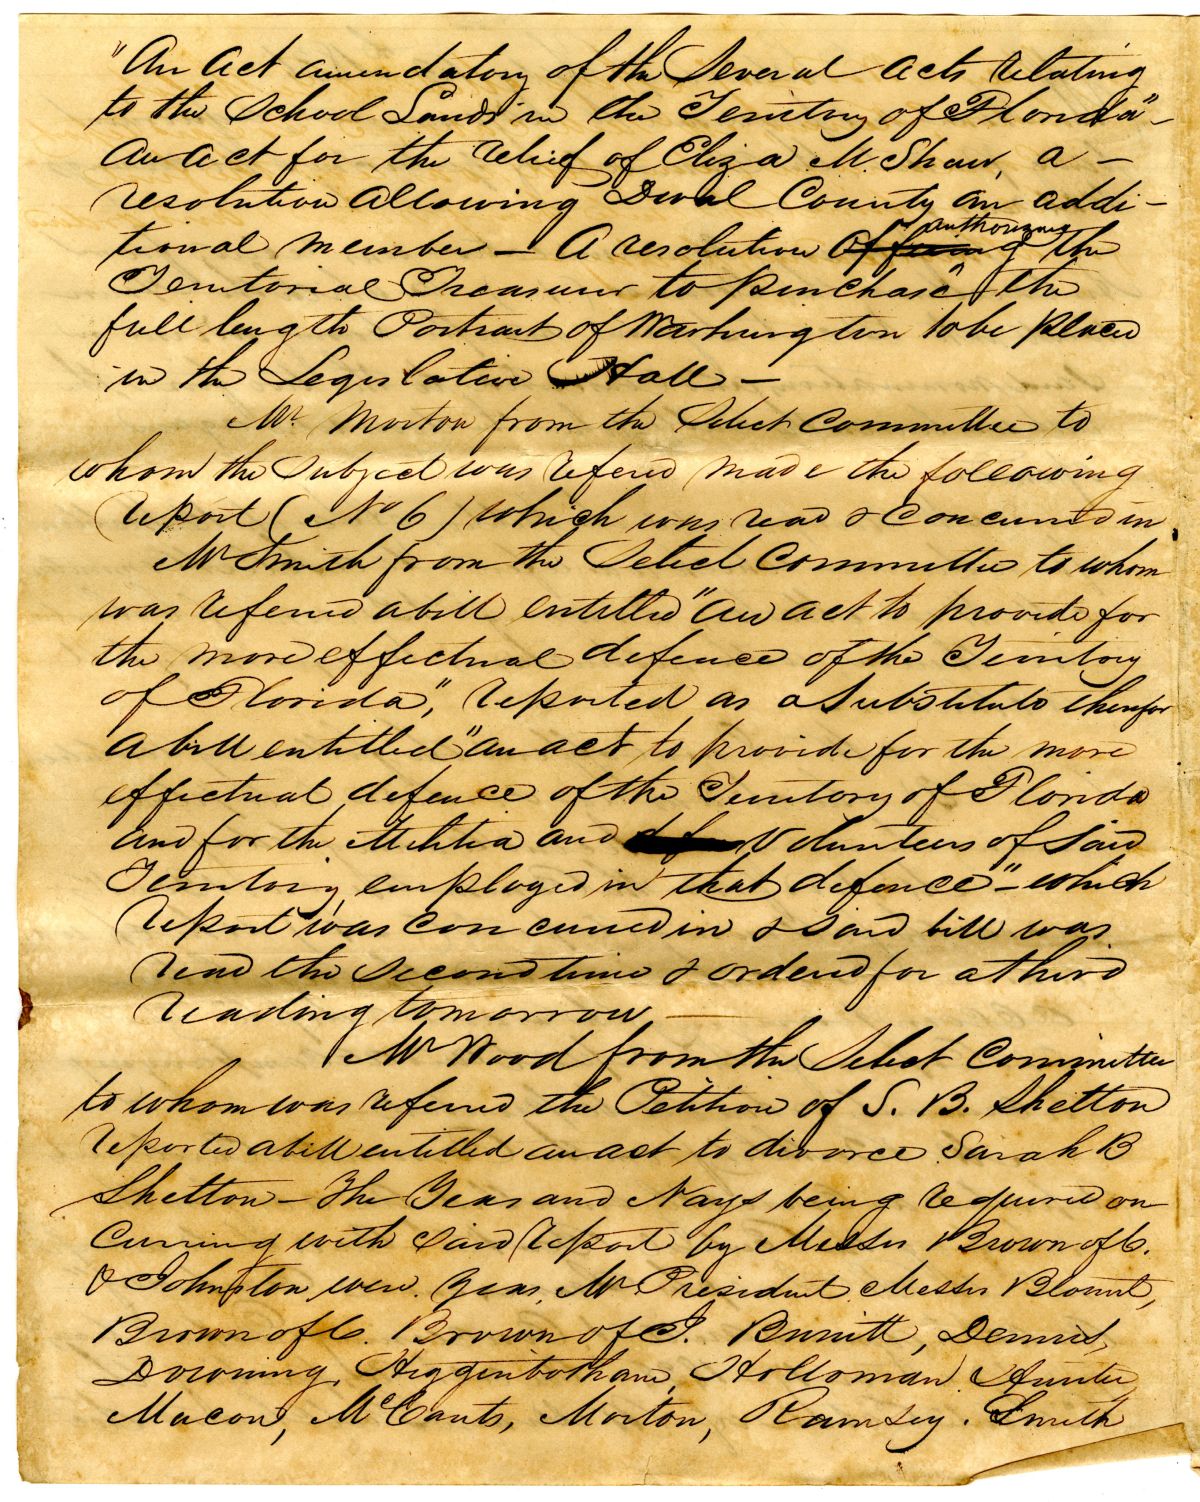 "An Act amendatory of the Several acts relating
to the School Lands in the Territory of Florida" –
An act for the relief of Eliza M. Shaw, a –
resolution allowing Duval County an addi –
tional member – A resolution authorizing the
Territorial Treasurer to purchase the
full length Portrait of Washington to be placed
in the Legislative Hall –
Mr. Morton from the Select Committee to
whom the subject was refered made the following
report (No 6) which was read & concurred in
Mr Smith from the Select Committee to whom
was referred a bill entitled "An act to provide for
the more effectual defence of the Territory
of Florida", reported as a Substitute therefor
a bill entitled "an act to provide for the more
effectual defence of the Territory of Florida
and for the Militia and Volunteers of Said
Territory employed in that defence" – which
report was concurred in & Said bill was
read the second time & ordered for a third
reading tomorrow —
Mr Wood from the Select Committee
to whom was referred the Petition of S. B. Shelton
reported a bill entitled an act to divorce Sarah B
Shelton – The Yeas and Nays being required on
curring with Said report by Messrs Brown of C.
& Johnston were. Yeas, Mr President Messrs Blount,
Brown of C. Brown of J. Burritt, Dennis,
Downing, Higginbotham, Holloman. Hunter
Macon, McCants, Morton, Ramsey. Smith